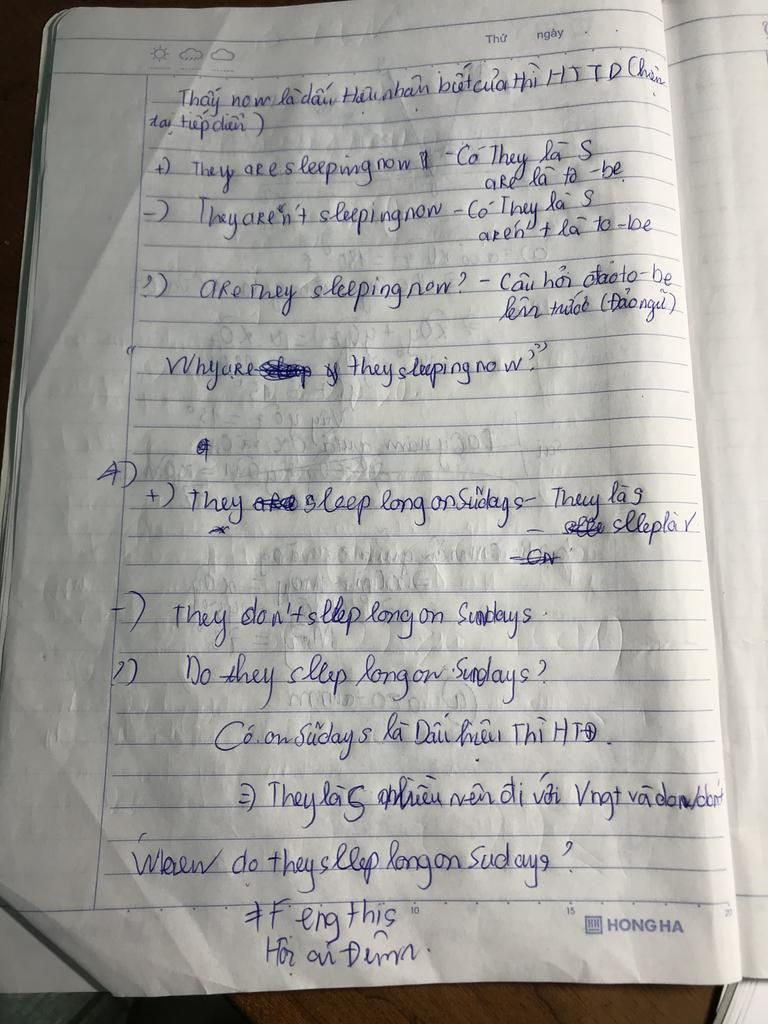 Thứ ngày
Thấy now là dấu hiệu nhận biết của thì HTTD (hiện
tại tiếp diễn)
+) They are sleeping now - Có They là S
are là to-be
-) They aren't sleeping now - Có They là S
aren't là to-be
?) are they sleeping now? - Câu hỏi đảo to-be
lên trước (Đảo ngữ)
"Why are they sleeping now?"
4)
+) They sleep long on Sundays - They là S
- slleplà V
-) They don't sllep long on Sundays.
?) Do they sllep long on Sundays?
Có on Sundays là Dấu hiệu Thì HTĐ.
=) They là S nhiều nên đi với Vngt và
When do they sllep long on Sudays?
eng this
10 15 20
HH HONG HA